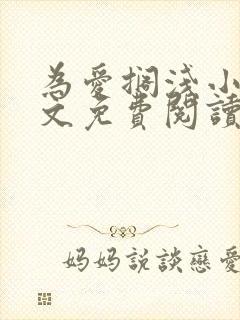 為愛擱淺小
文免費閱讀
妈妈説談戀愛